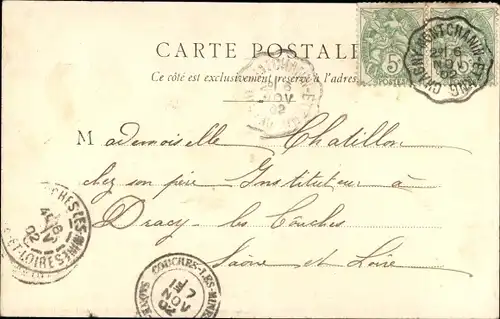 CARTE POSTALE
Ce côté est exclusivement réservé à l'adres
5
5
6
NOV
02
6
NOV
02
Mademoiselle Chatillon
chez son père Instituteur à
Dracy - les Couches
Saône et Loire
CHES-LES-MINES
6
02
ET-LOIRE
COUCHES-LES-MINES
7
NOV
02